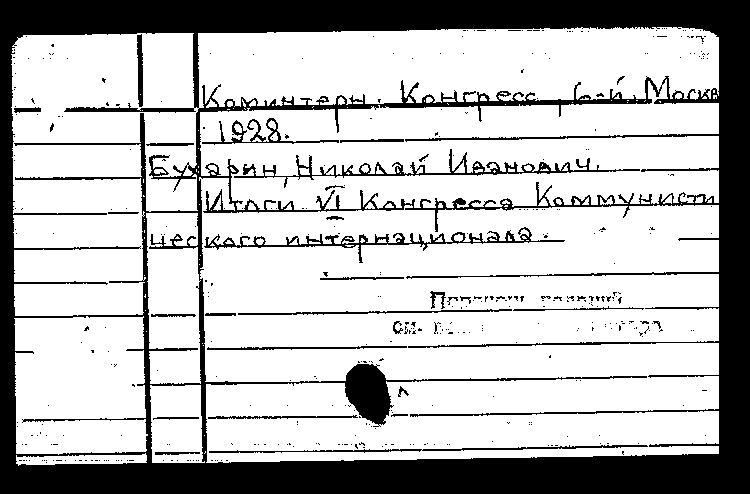 Коминтерн. Конгресс, 6-й. Москв
1928.
Бухарин, Николай Иванович.
Итоги VI Конгресса Коммунисти
ческого интернационала.
см-